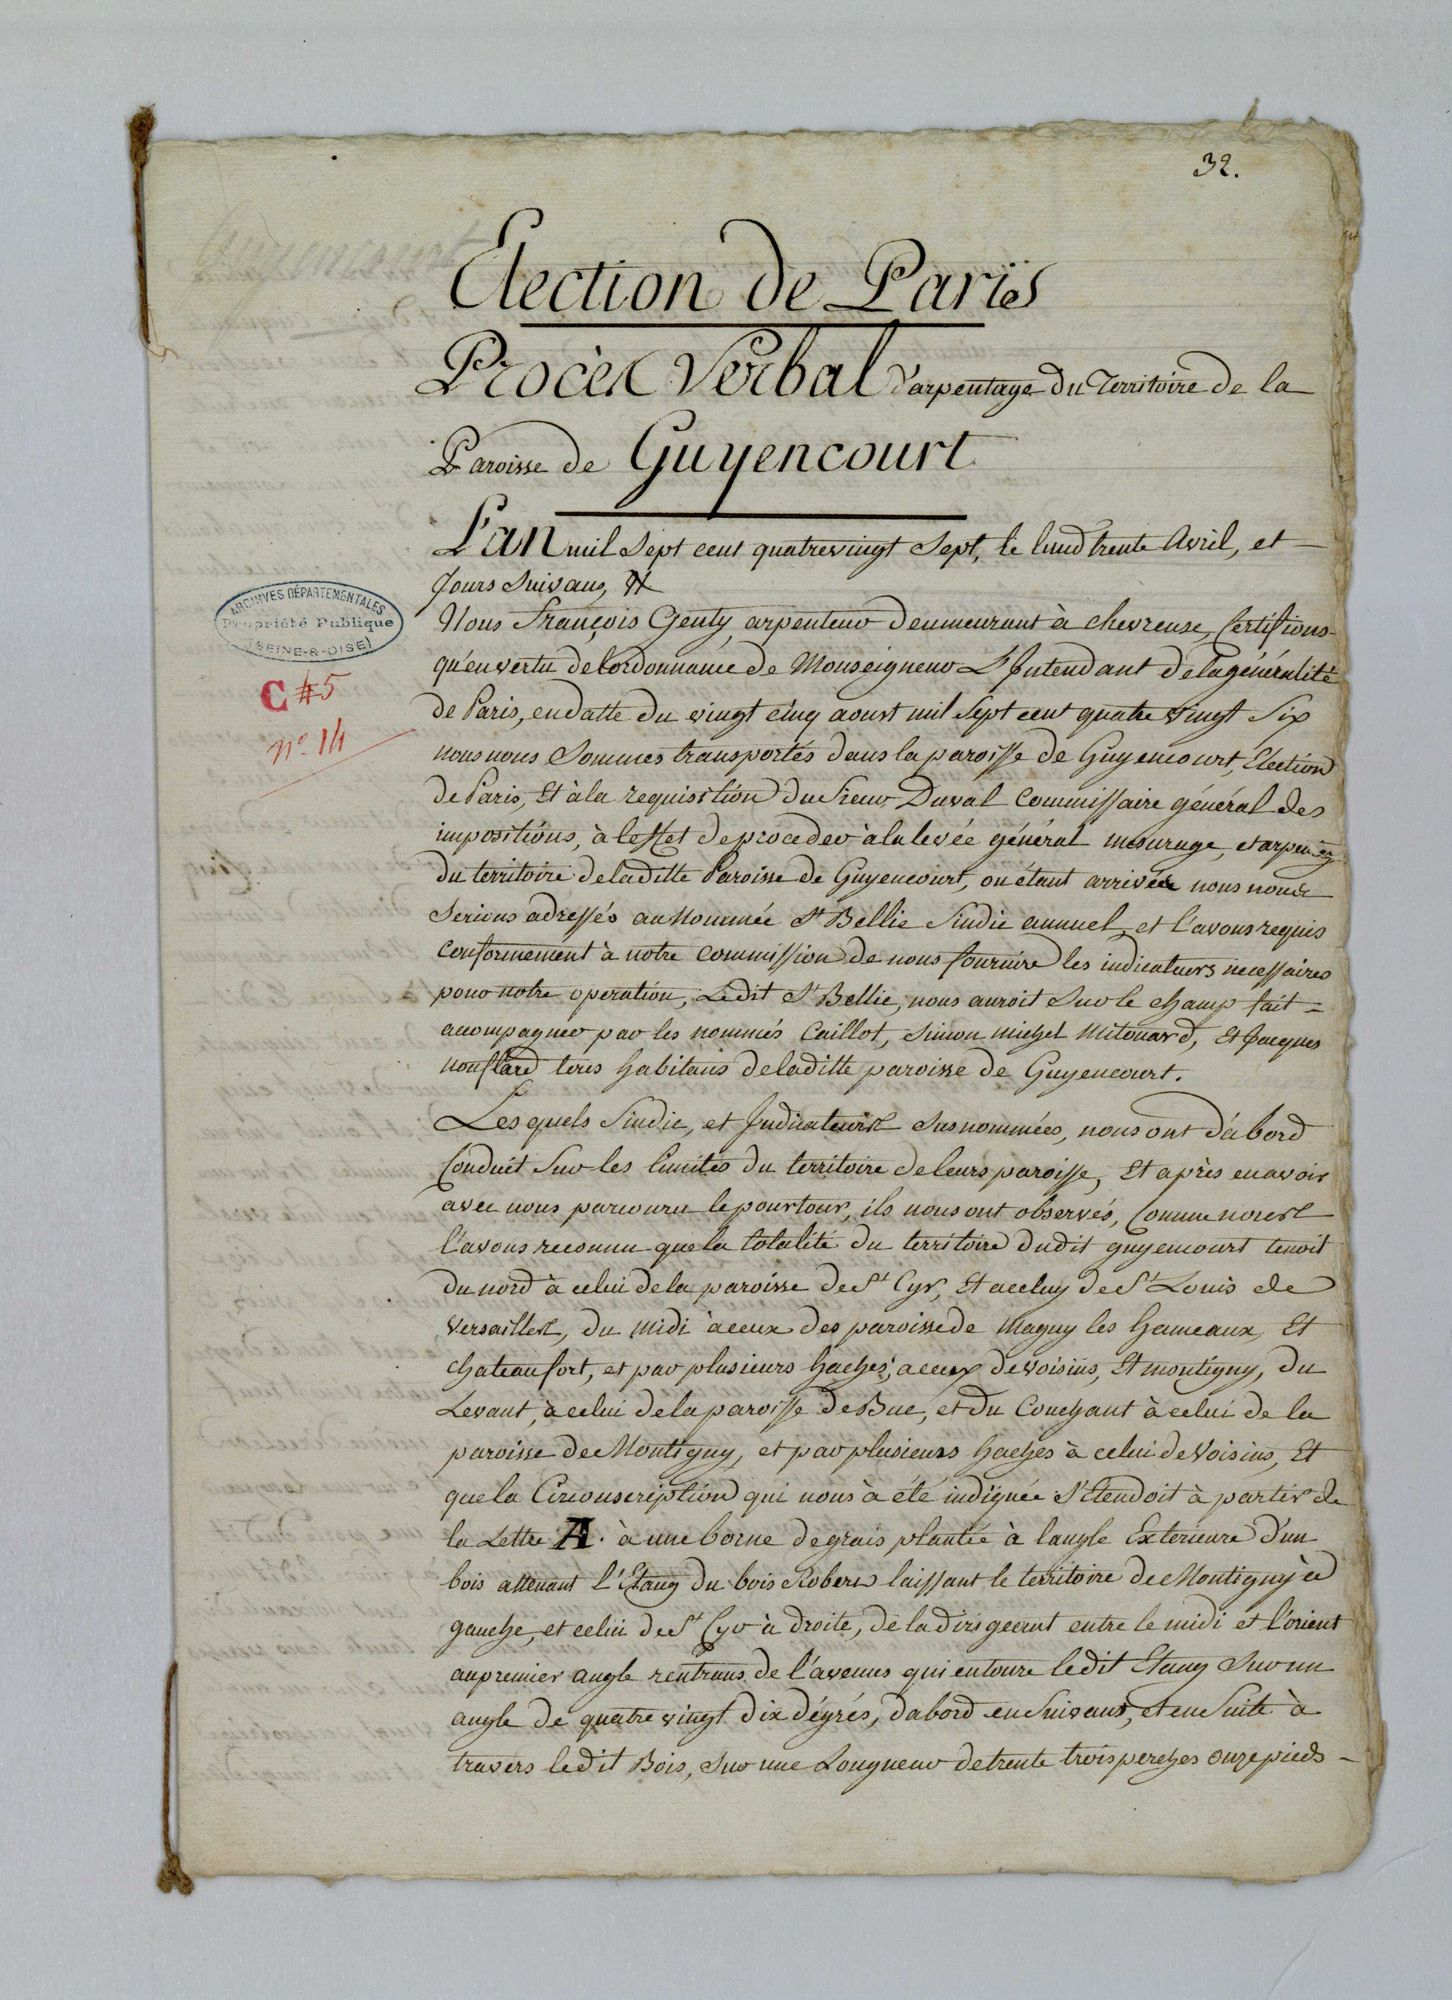 32.
Election de Paris
Procès Verbal d'arpentage du Territoire de la
Paroisse de Guyencourt
L'an mil Sept cent quatrevingt Sept, le lundi trente Avril, et
Jours Suivans,
ARCHIVES DÉPARTEMENTALES
Propriété Publique
(SEINE-&-OISE)
C 45
n° 14
Nous François Genty, arpenteur demeurant à chevreuse, Certifions
qu'en vertu de l'ordonnance de Monseigneur L'Intendant de la généralité
de Paris, en datte du vingt cinq aoust mil Sept cent quatre vingt Six
nous nous Sommes transportés dans la paroisse de Guyencourt, Election
de Paris, Et à la requisition du Sieur Duval Commissaire général des
impositions, à l'effet de proceder à la levée général mesurage, et arpentag
du territoire de laditte Paroisse de Guyencourt, ou étant arrivée nous nous
Serions adressés au Nommée St Bellie Sindic annuel, et l'avons requis
conformement à notre commission de nous fournire les indicateurs necessaires
pour notre operation, Ledit St Bellie, nous auroit Sur le champ fait =
accompagner par les nommés Caillot, Simon michel Mitouard, Et Jacques
nouflard tous habitans de laditte paroisse de Guyencourt.
Les quels Sindic, et Indicateurs Susnommées, nous ont d'abord
Conduit Sur les limites du territoire de leurs paroisse, Et après en avoir
avec nous parcouru le pourtour, ils nous ont observés, Comme nous
l'avons reconnu que la totalité du territoire dudit guyencourt tenoit
du nord à celui de la paroisse de St Cyr, Et a celuy de St Louis de
Versailles, du midi à ceux des paroisse de Magny les hameaux, Et
chateaufort, et par plusieurs haches, a ceux de Voisins, Et montigny, du
Levant, à celui de la paroisse de Buc, et du Couchant à celui de la
paroisse de Montigny, et par plusieurs haches à celui de Voisins, Et
que la Circonscription qui nous à été indiquée S'étendoit à partir de
la Lettre A. à une borne de grais plantée à l'angle Exterieure d'un
bois attenant L'Etang du bois Robert laissant le territoire de Montigny à
gauche, et celui de St Cyr à droite, de la dirigeant entre le midi et l'orient
au premier angle rentrans de l'avenus qui entoure ledit Etang Sur un
angle de quatre vingt dix dégrés, d'abord en Suivant, et en Suite à
travers ledit Bois, Sur une Longueur de trente trois perches onze pieds -